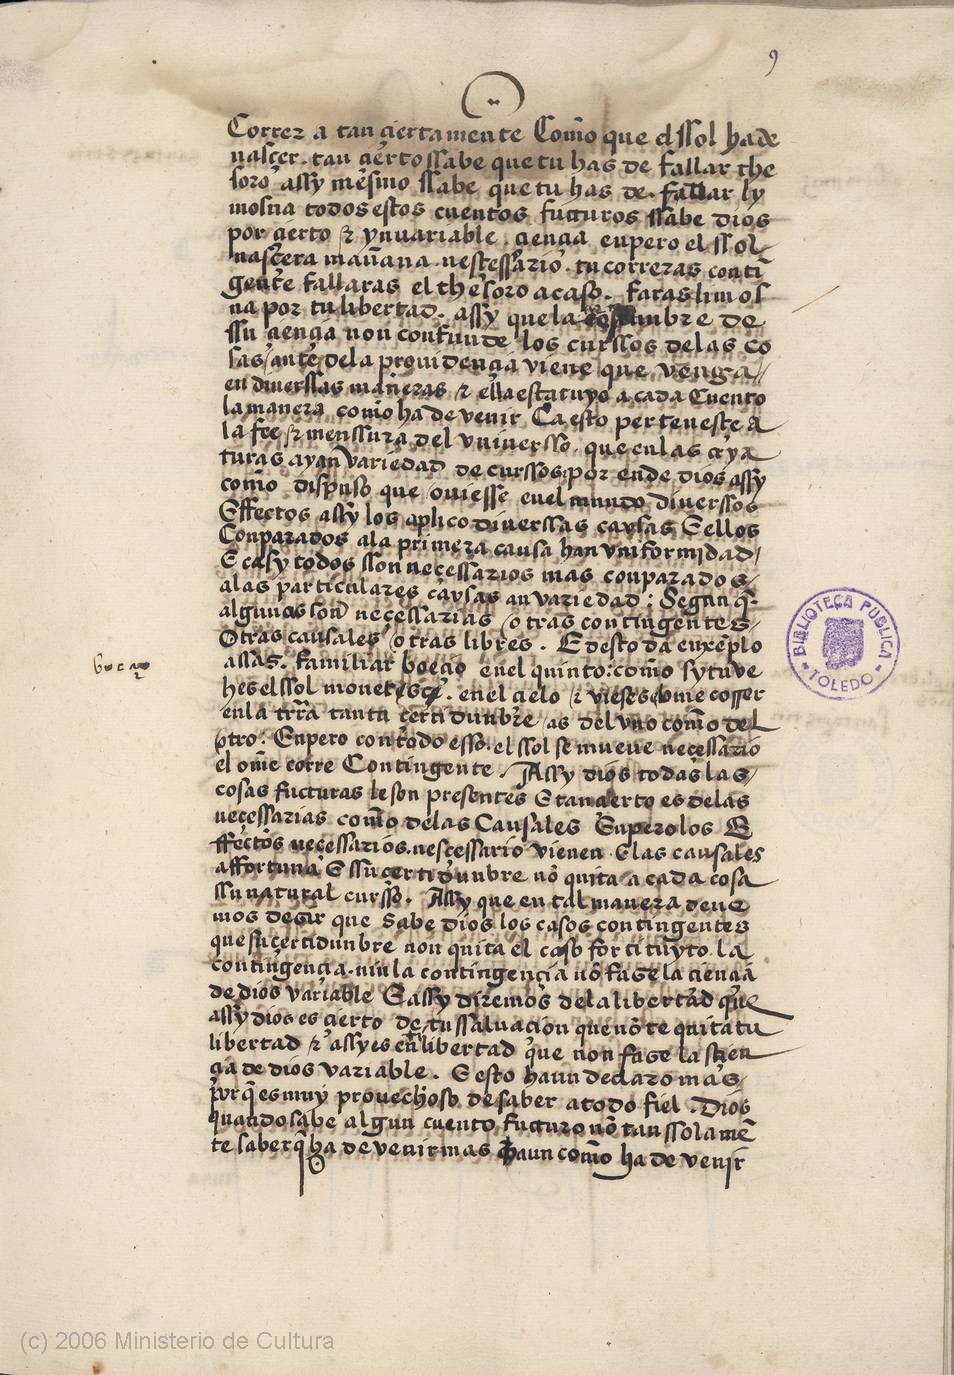 9
Correr a tan çiertamente Como que el ssol ha de
nasçer. tan çierto ssabe que tu has de fallar the
soro assy mesmo ssabe que tu has de fallar ly
mosna todos estos cuentos futturos ssabe dios
por çierto & ynuariable çiençia enpero el ssol
nasçera mañana nesçessario. tu correras contī
gente fallaras el thesoro a caso. faras limos
na por tu libertad. assy que la dunbre de
ssu çiençia non confunde los curssos delas co
sas ante dela prouidençia viene que venga
en diuerssas maneras & ella estatuyo a cada Cuento
la manera como ha de venir Ca esto perteneste a
la fee & menssura del vniversso. que en las crya
turas ayan variedad de curssos por ende dios assy
como dispuso que ouiesse enel mundo diverssos
Effectos assy los aplico diverssas cavsas E ellos
Conparados ala primera causa han vniformidad
E casy todos sson neçessarios mas conparados
alas particulares cavsas an variedad: Segun q̄
algunos son neçessarias / otras contingentes
Otras causales / otras libres. E desto da enxēplo
assas. familiar boeçio enel quinto: como sy tu ve
hes el ssol enel çielo & vieses ome correr
enla trr̄a tanta çertidunbre as del vno como del
otro: Enpero con todo esso. el ssol se mueve neçessario
el ome corre Contingente. Assy dios todas las
cosas futturas le son presentes E tan çierto es delas
neçessarias como delas Causales Enpero los E
ffectos neçessarios. nesçessario vienen E las causales
affortuna E ssu çertidunbre nō quita a cada cosa
ssu natural cursso. Assy que en tal manera deue
mos dezir que sabe dios los casos contingentes
que su çertidunbre non quita el caso fortituyto. la
contingençia. nin la contingençia nō faze la çiençia
de dios variable E assy diremos dela libertad que
assy dios es çierto de tu ssaluaçion que nō te quita tu
libertad & assy es en̄ libertad que non faze la sçien
çia de dios variable. E esto haun declaro mas
porq̄ es muy prouechoso de saber a todo fiel. Dios
quando sabe algun cuento futturo nō tan ssolamē
te saber q̄ ha de venir mas haun como ha de venir
boeçio
BIBLIOTECA PUBLICA
TOLEDO
(c) 2006 Ministerio de Cultura